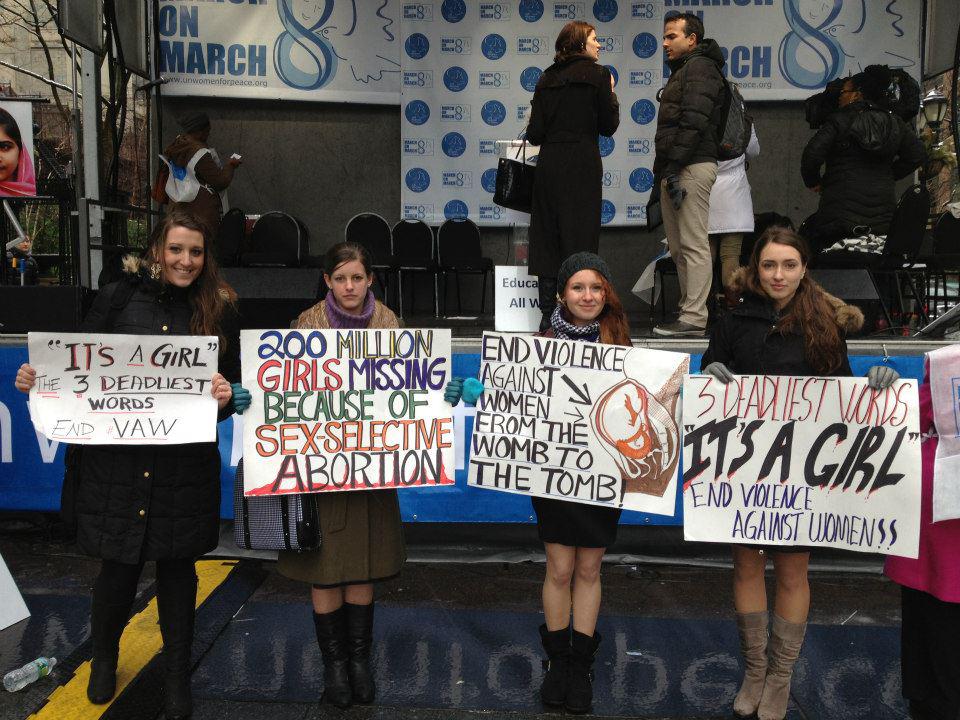 ON MARCH
www.unwomenforpeace.org
8
MARCH
ON
MARCH
8
Educa
All W
"IT'S A GIRL"
THE 3 DEADLIEST
WORDS
END #VAW
200 MILLION
GIRLS MISSING
BECAUSE OF
SEX-SELECTIVE
ABORTION
END VIOLENCE
AGAINST
WOMEN
FROM THE
WOMB TO
THE TOMB!
3 DEADLIEST WORDS
"IT'S A GIRL"
END VIOLENCE
AGAINST WOMEN!!